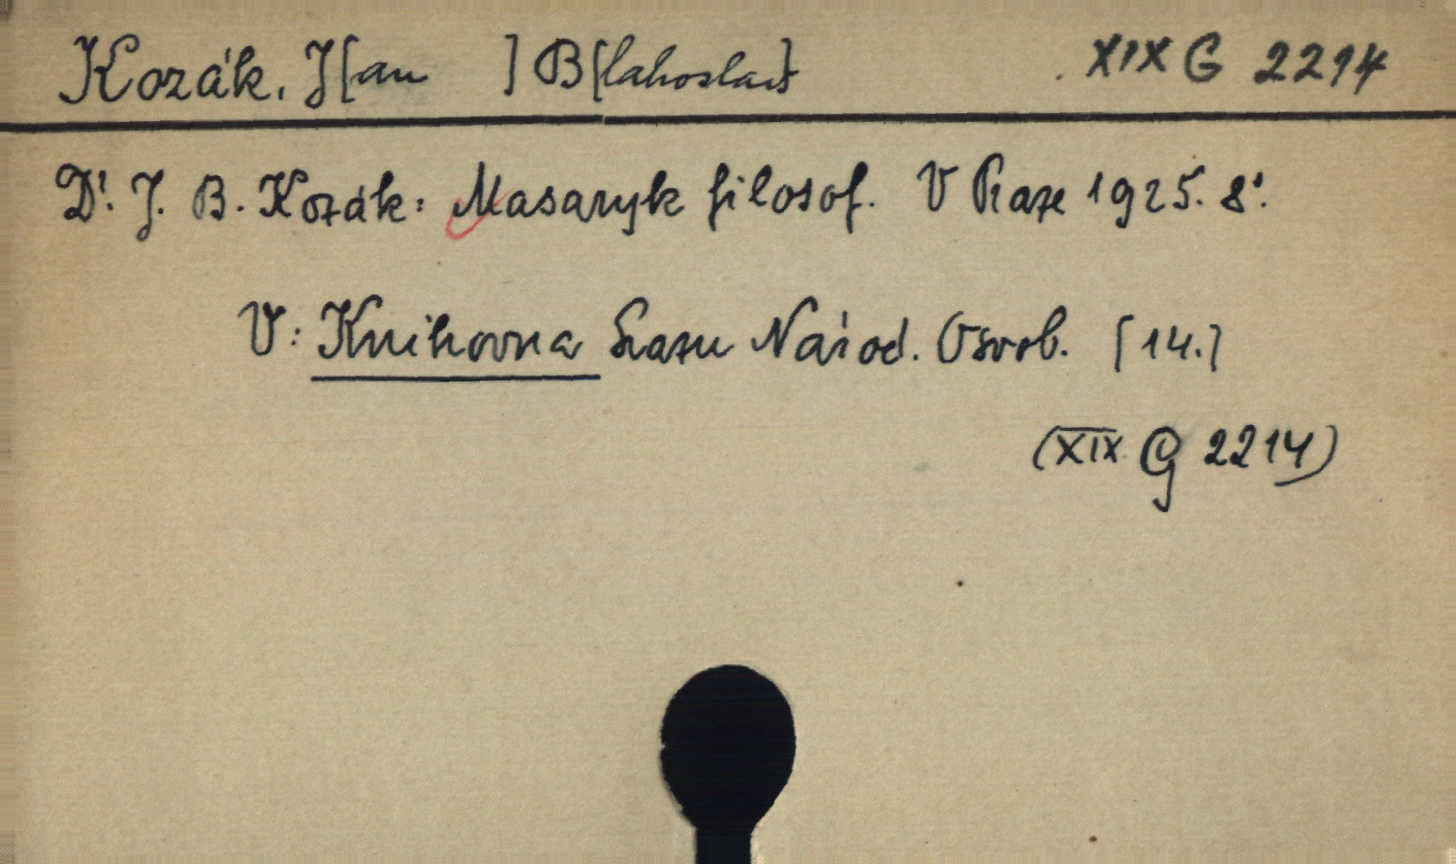 Kozák, J[an ] B[lahoslav] XIX G 2214
Dr. J. B. Kozák: Masaryk filosof. V Praze 1925. 8°.
V: Knihovna Svazu Národ. Osvob. [14.]
(XIX G 2214)